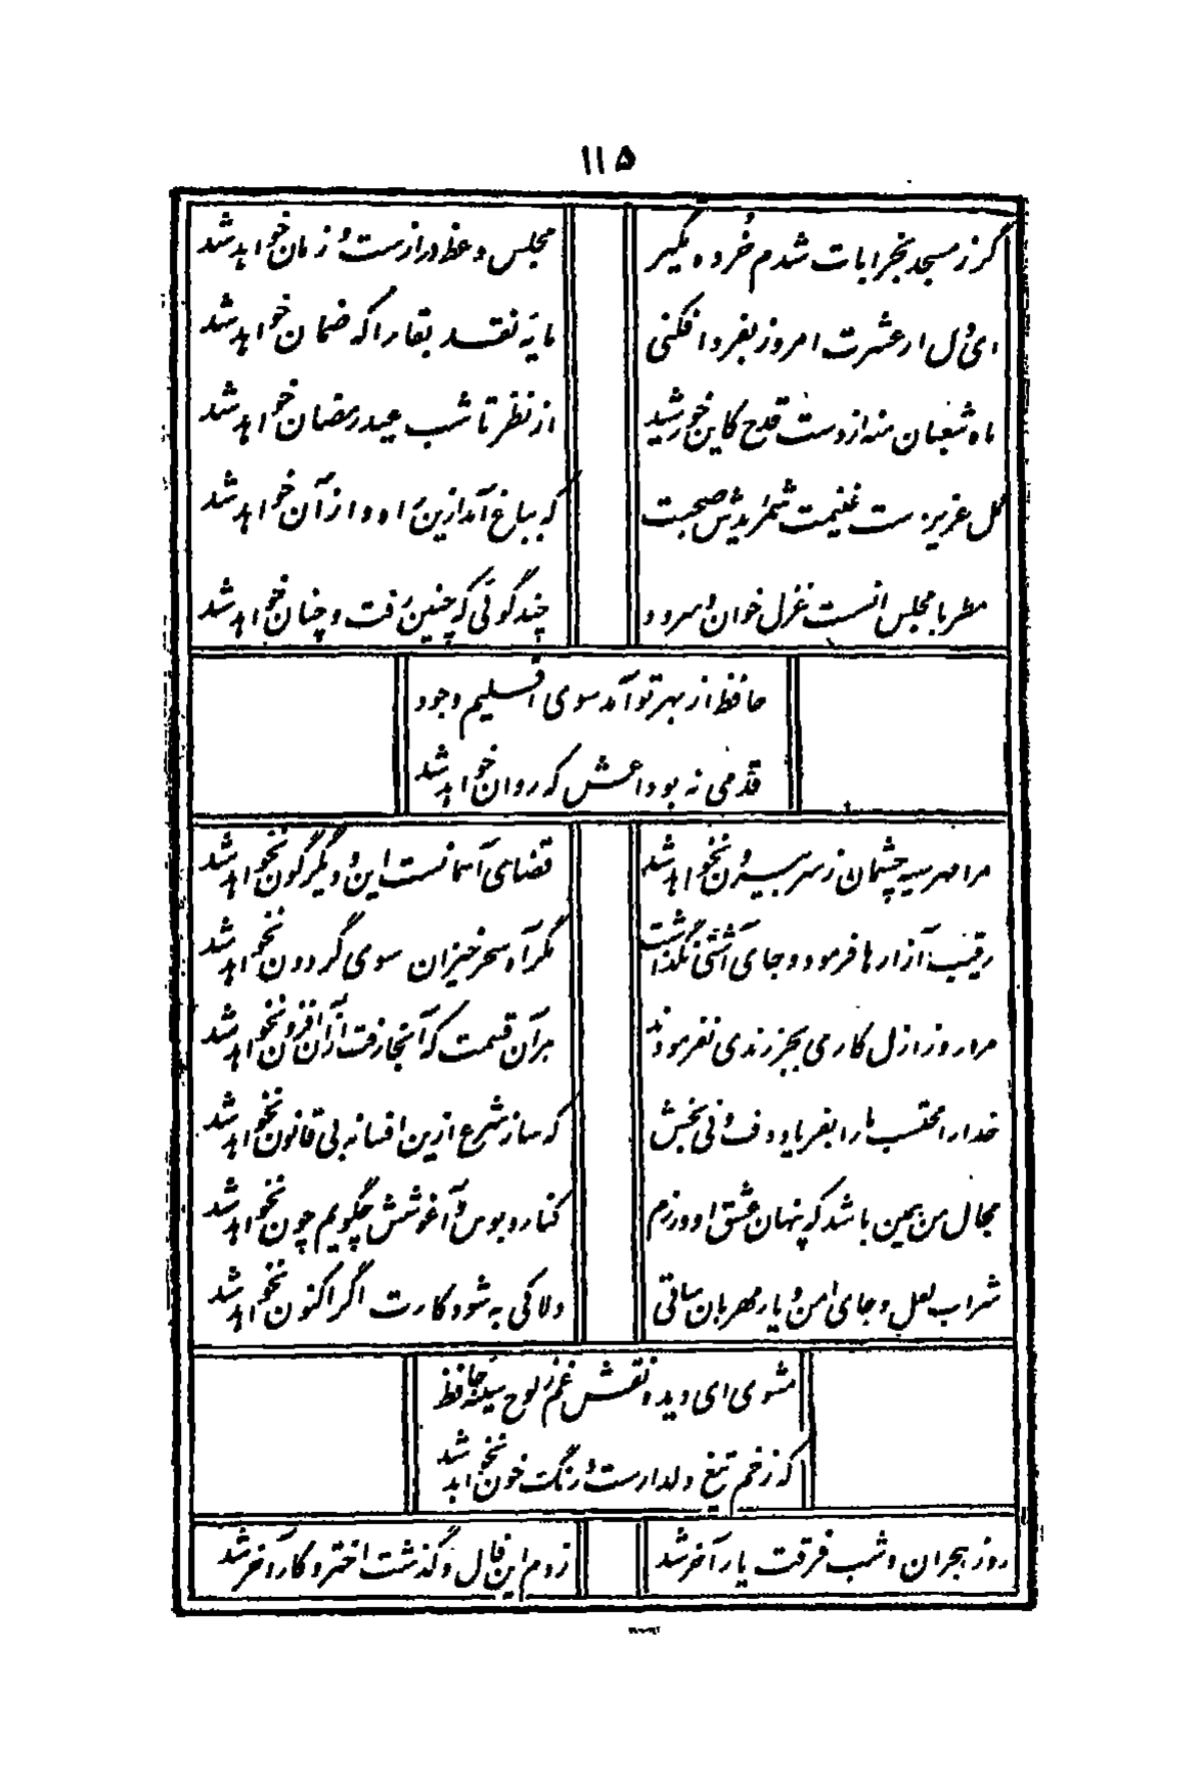 ۱۱۵
گر ز مسجد بخرابات شدم خرده مگیر
مجلس وعظ درازست و زمان خواهد شد
ای دل ار عشرت امروز بفردا فکنی
مایه نقد بقا را که ضمان خواهد شد
ماه شعبان منه از دست قدح کاین خورشید
از نظر تا شب عید رمضان خواهد شد
گل عزیزست غنیمت شمریدش صحبت
که بباغ آمد ازین راه و از آن خواهد شد
مطربا مجلس انست غزل خوان و سرود
چند گوئی که چنین رفت و چنان خواهد شد
حافظ از بهر تو آمد سوی اقلیم وجود
قدمی نه بوداعش که روان خواهد شد
مرا مهر سیه چشمان ز سر بیرون نخواهد شد
قضای آسمانست این و دیگرگون نخواهد شد
رقیب آزارها فرمود و جای آشتی نگذاشت
مگر آه سحرخیزان سوی گردون نخواهد شد
مرا روز ازل کاری بجز رندی نفرمودند
هر آن قسمت که آنجا رفت از آن افزون نخواهد شد
خدا را محتسب ما را بفریاد دف و نی بخش
که ساز شرع ازین افسانه بی قانون نخواهد شد
مجال من همین باشد که پنهان عشق او ورزم
کنار و بوس و آغوشش چگویم چون نخواهد شد
شراب لعل و جای امن و یار مهربان ساقی
دلا کی به شود کارت اگر اکنون نخواهد شد
مشوی ای دیده نقش غم ز لوح سینه حافظ
که زخم تیغ دلدارست و رنگ خون نخواهد شد
روز هجران و شب فرقت یار آخر شد
زدم این فال و گذشت اختر و کار آخر شد